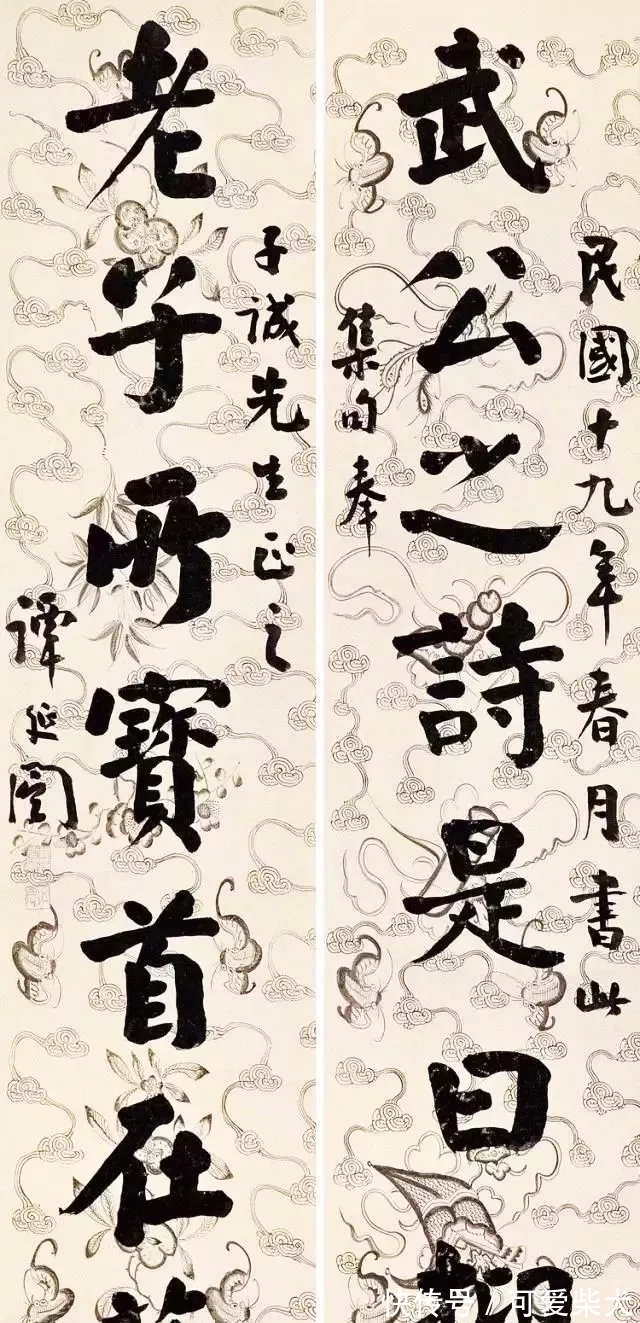 民國十九年春月書此
武公之詩是曰
集句奉
子誠先生正之
老子所寶首在
譚延闓
快传号 / 可爱柴犬